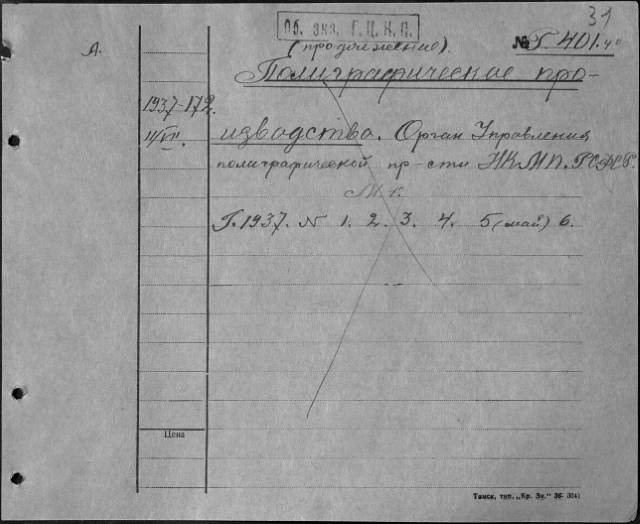 31
Об. экз. Г.Ц.К.П.
А.
(продолжение).
№ Г-401.
Полиграфическое про-
1937-172.
11/VII.
изводство. Орган Управления
полиграфической пр-сти НКМП. РСФСР.
М.
Г. 1937. N 1. 2. 3. 4. 5 (май) 6.
Цена
Томск, тип. „Кр. Зн." 36- 3041